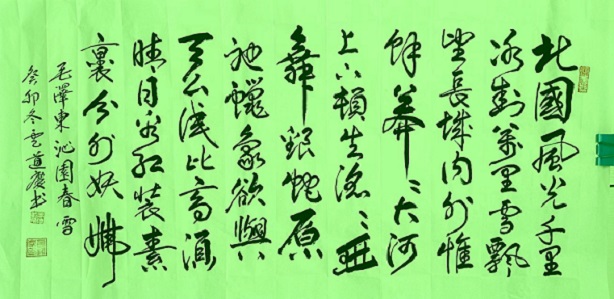 北國風光千里
冰封萬里雪飄
望長城内外惟
餘莽々大河
上下頓失滔々山
舞銀蛇原
馳蠟象欲與
天公試比高須
晴日看紅裝素
裹分外妖嬈
毛澤東沁園春雪
癸卯冬雲道书